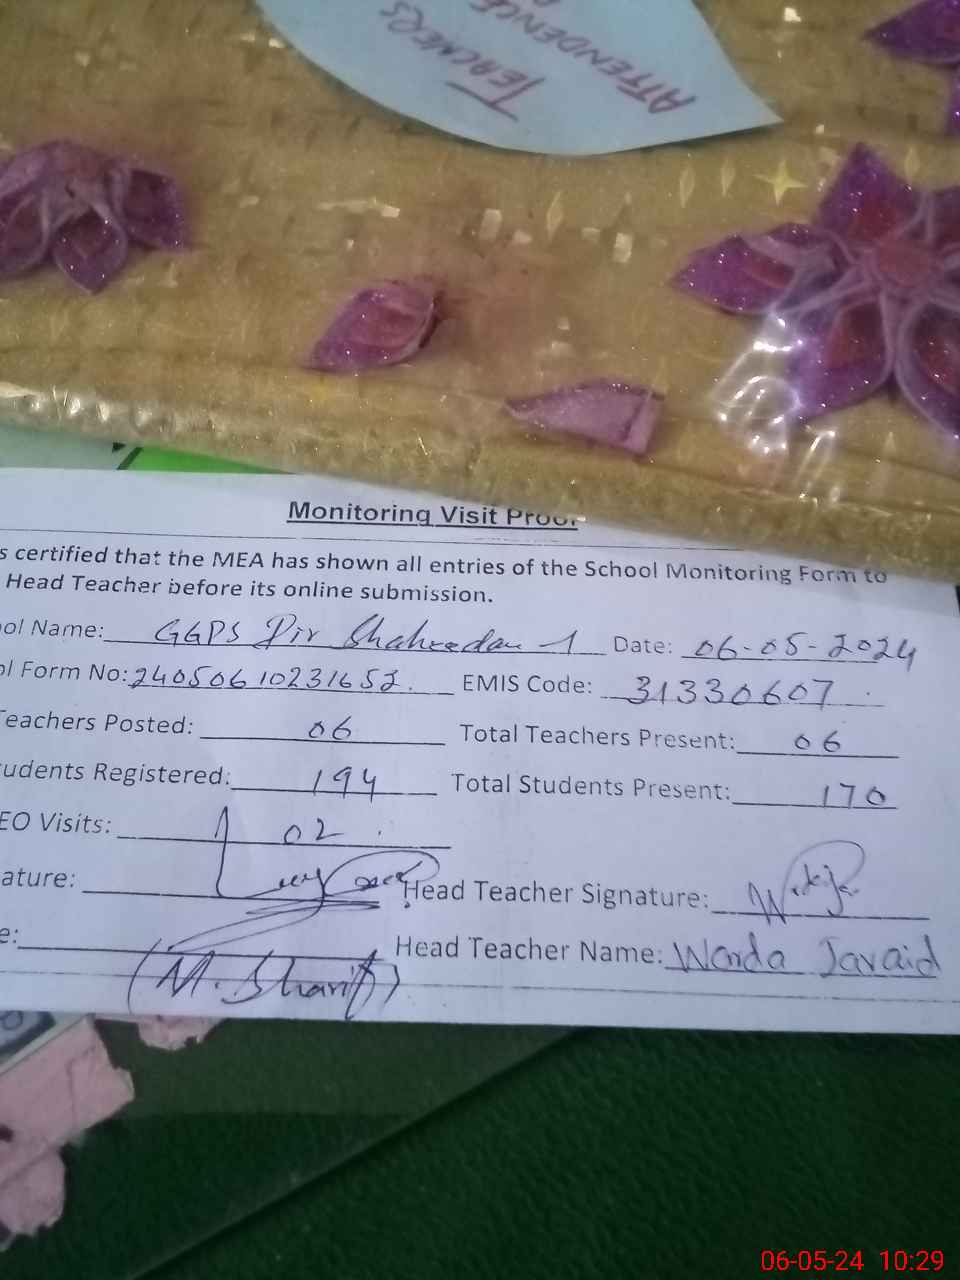 TEACHERS
ATTENDENCE
Monitoring Visit Proof
s certified that the MEA has shown all entries of the School Monitoring Form to
Head Teacher before its online submission.
ool Name: GGPS Pir Shaheedan 1 Date: 06-05-2024
ol Form No: 24050610231652. EMIS Code: 31330607
Teachers Posted: 06 Total Teachers Present: 06
udents Registered: 194 Total Students Present: 170
EO Visits: 02
ature: Head Teacher Signature:
e: Head Teacher Name: Warda Javaid
(M. Sharif)
06-05-24 10:29